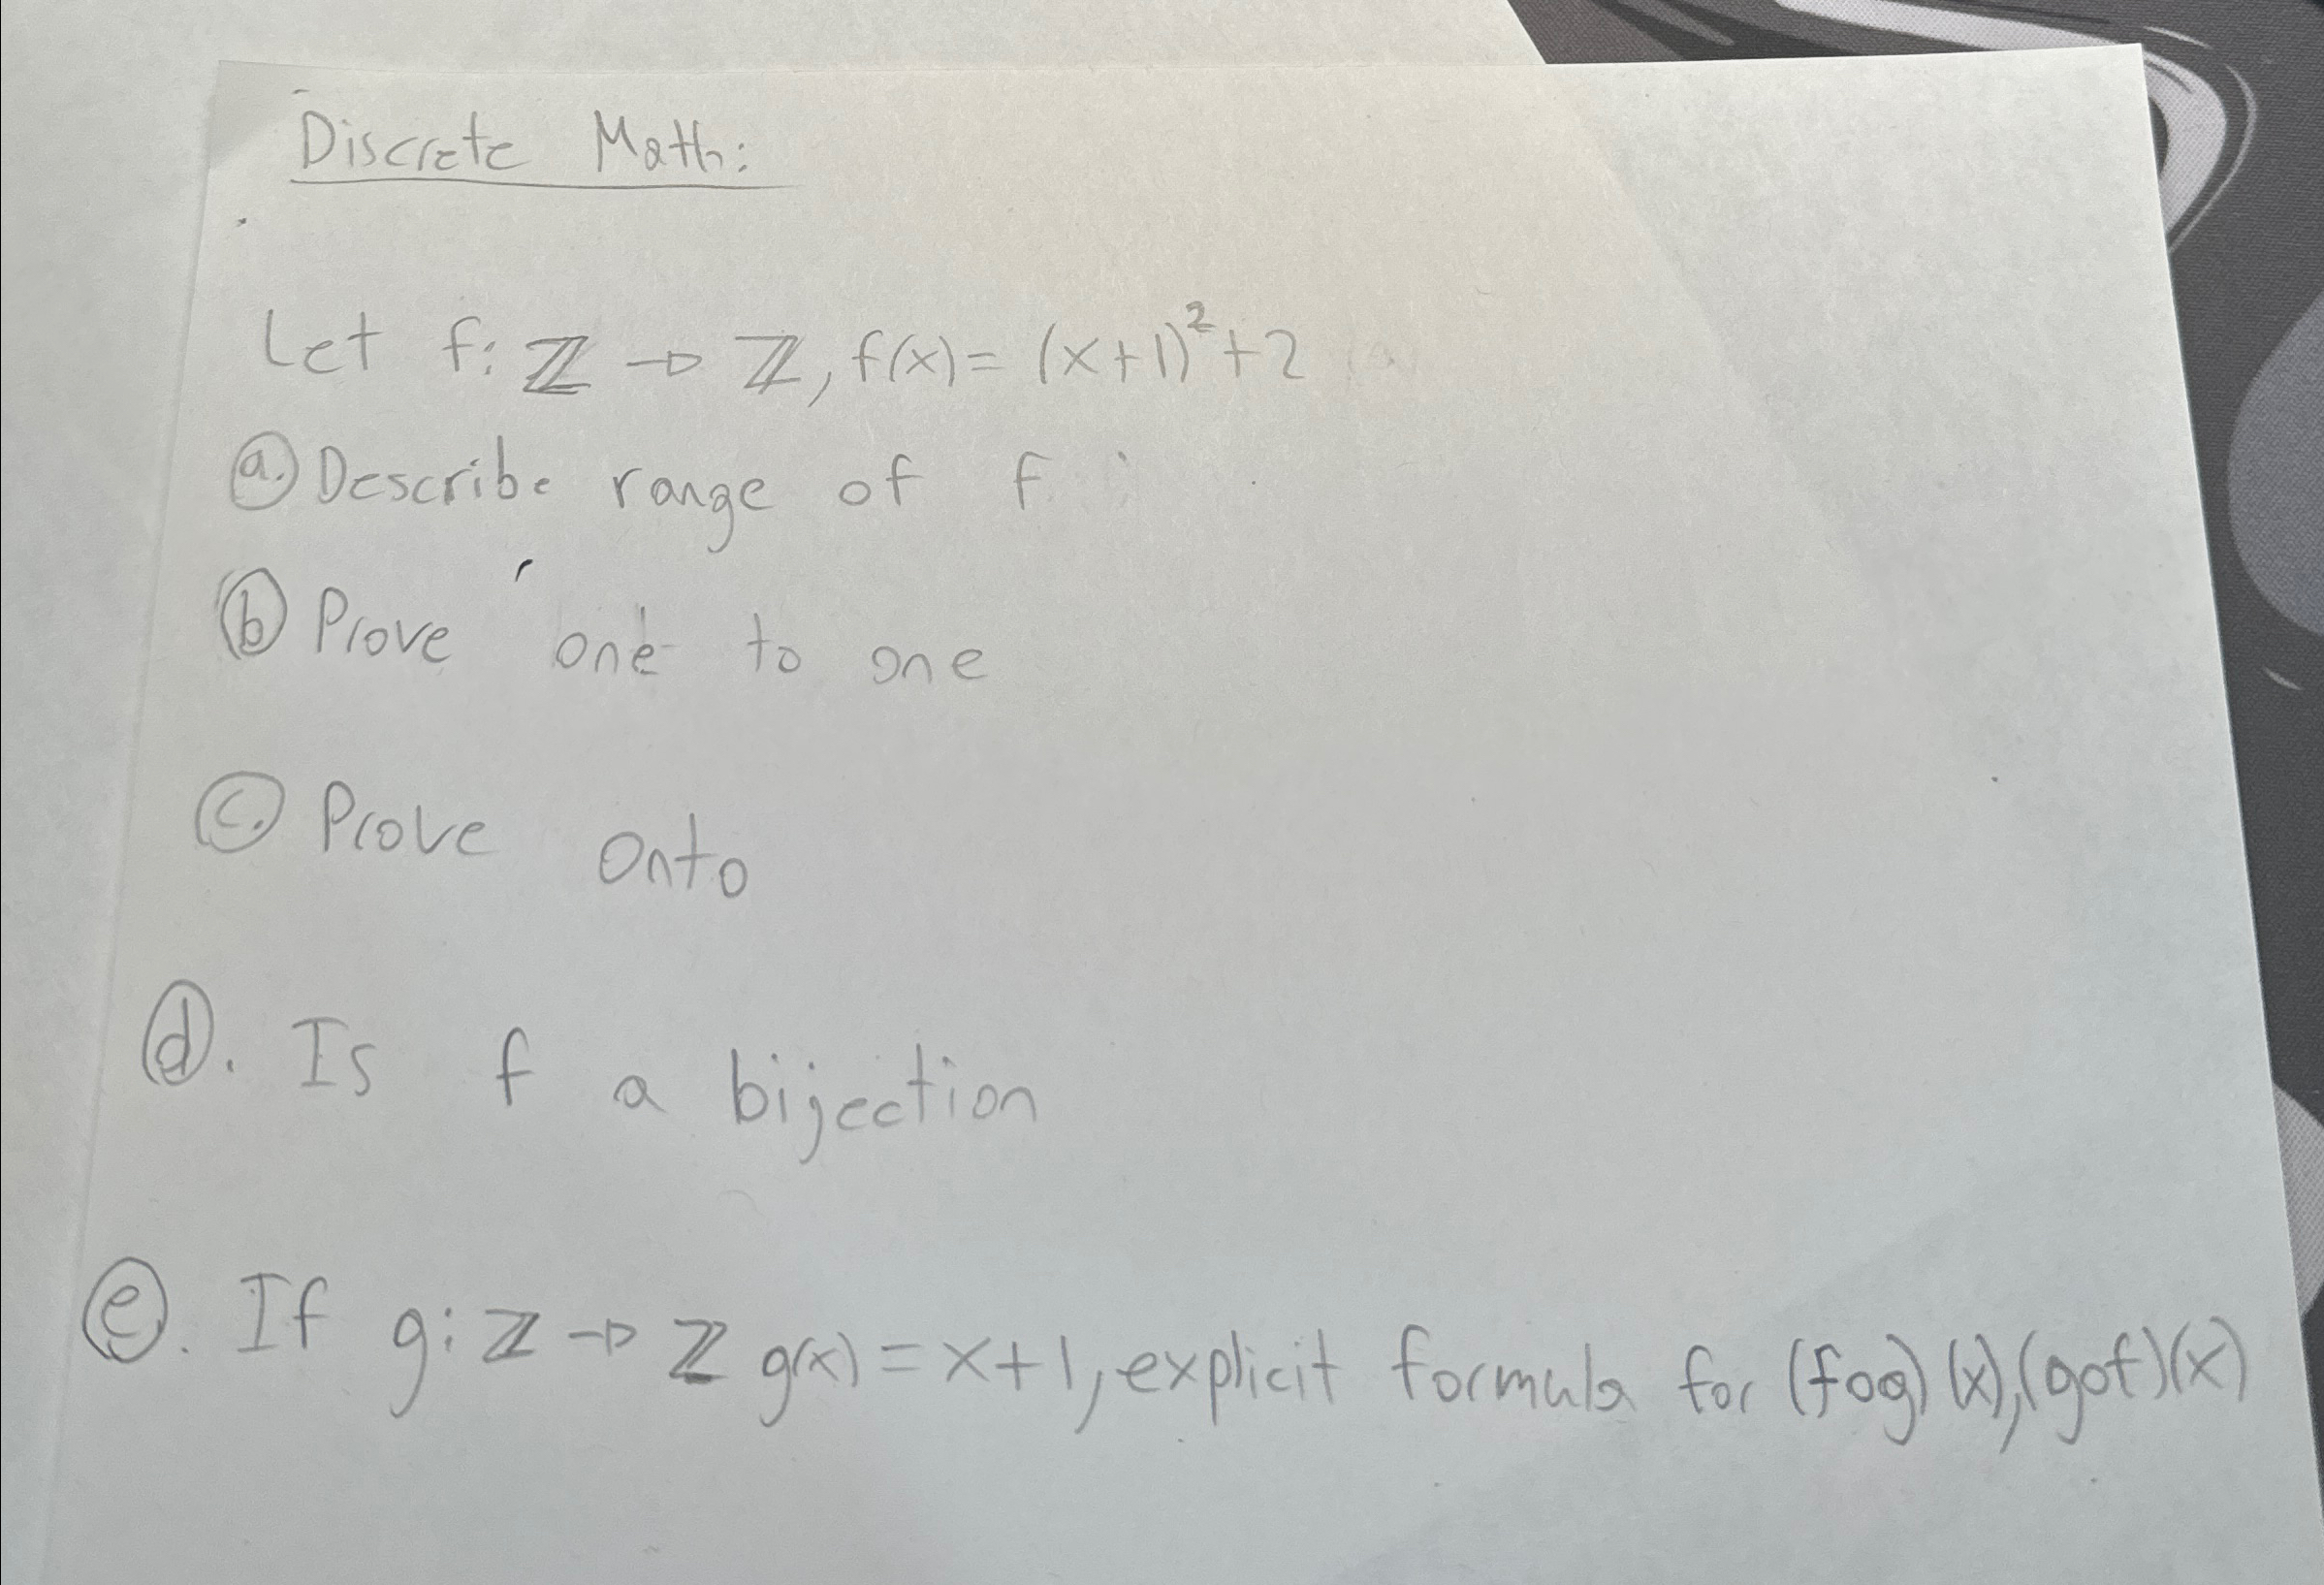 Discrete Math:
Let f: ℤ → ℤ, f(x) = (x+1)²+2
a. Describe range of f
b Prove one to one
c. Prove onto
d. Is f a bijection
e. If g: ℤ → ℤ g(x) = x+1, explicit formula for (fog)(x), (gof)(x)